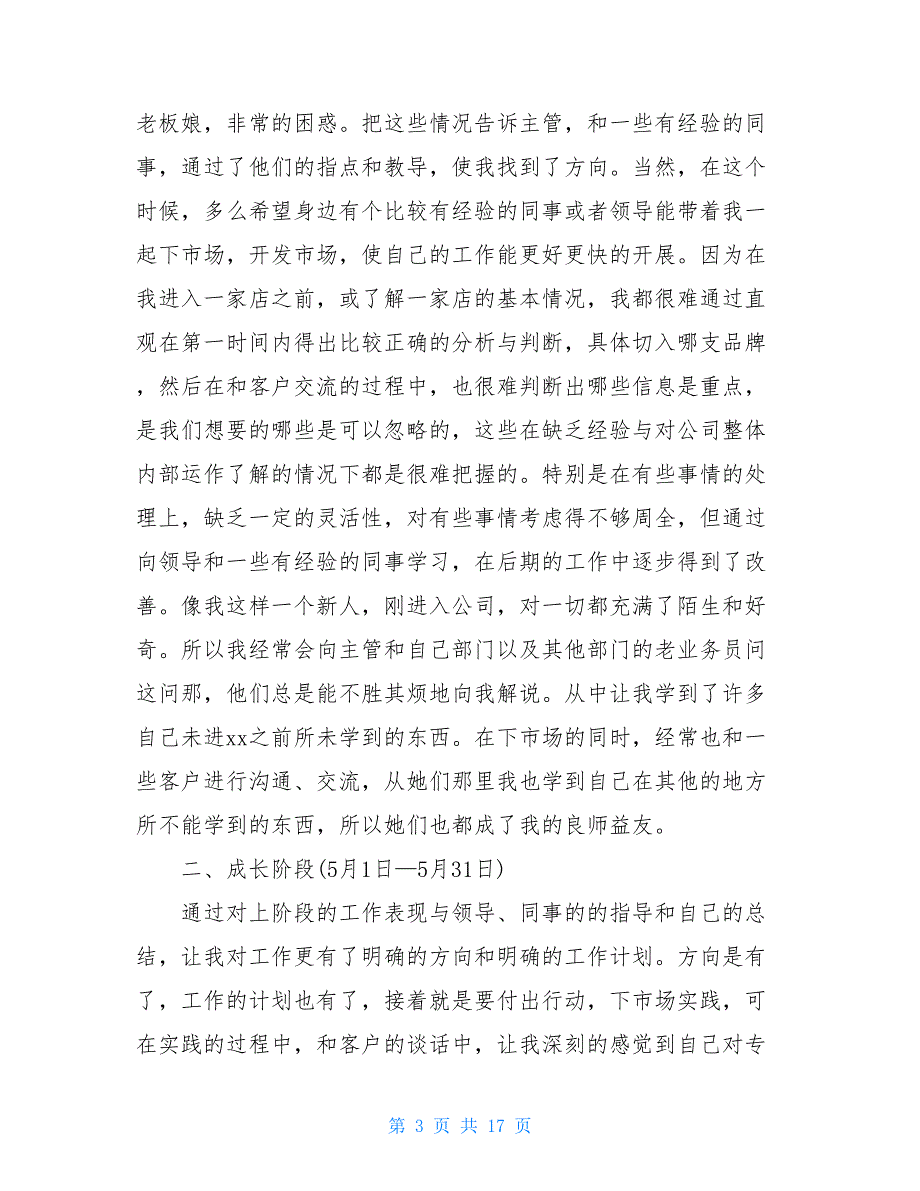 老板娘，非常的困惑。把这些情况告诉主管，和一些有经验的同
事，通过了他们的指点和教导，使我找到了方向。当然，在这个
时候，多么希望身边有个比较有经验的同事或者领导能带着我一
起下市场，开发市场，使自己的工作能更好更快的开展。因为在
我进入一家店之前，或了解一家店的基本情况，我都很难通过直
观在第一时间内得出比较正确的分析与判断，具体切入哪支品牌
，然后在和客户交流的过程中，也很难判断出哪些信息是重点，
是我们想要的哪些是可以忽略的，这些在缺乏经验与对公司整体
内部运作了解的情况下都是很难把握的。特别是在有些事情的处
理上，缺乏一定的灵活性，对有些事情考虑得不够周全，但通过
向领导和一些有经验的同事学习，在后期的工作中逐步得到了改
善。像我这样一个新人，刚进入公司，对一切都充满了陌生和好
奇。所以我经常会向主管和自己部门以及其他部门的老业务员问
这问那，他们总是能不胜其烦地向我解说。从中让我学到了许多
自己未进xx之前所未学到的东西。在下市场的同时，经常也和一
些客户进行沟通、交流，从她们那里我也学到自己在其他的地方
所不能学到的东西，所以她们也都成了我的良师益友。
二、成长阶段(5月1日—5月31日)
通过对上阶段的工作表现与领导、同事的的指导和自己的总
结，让我对工作更有了明确的方向和明确的工作计划。方向是有
了，工作的计划也有了，接着就是要付出行动，下市场实践，可
在实践的过程中，和客户的谈话中，让我深刻的感觉到自己对专
第 3 页 共 17 页